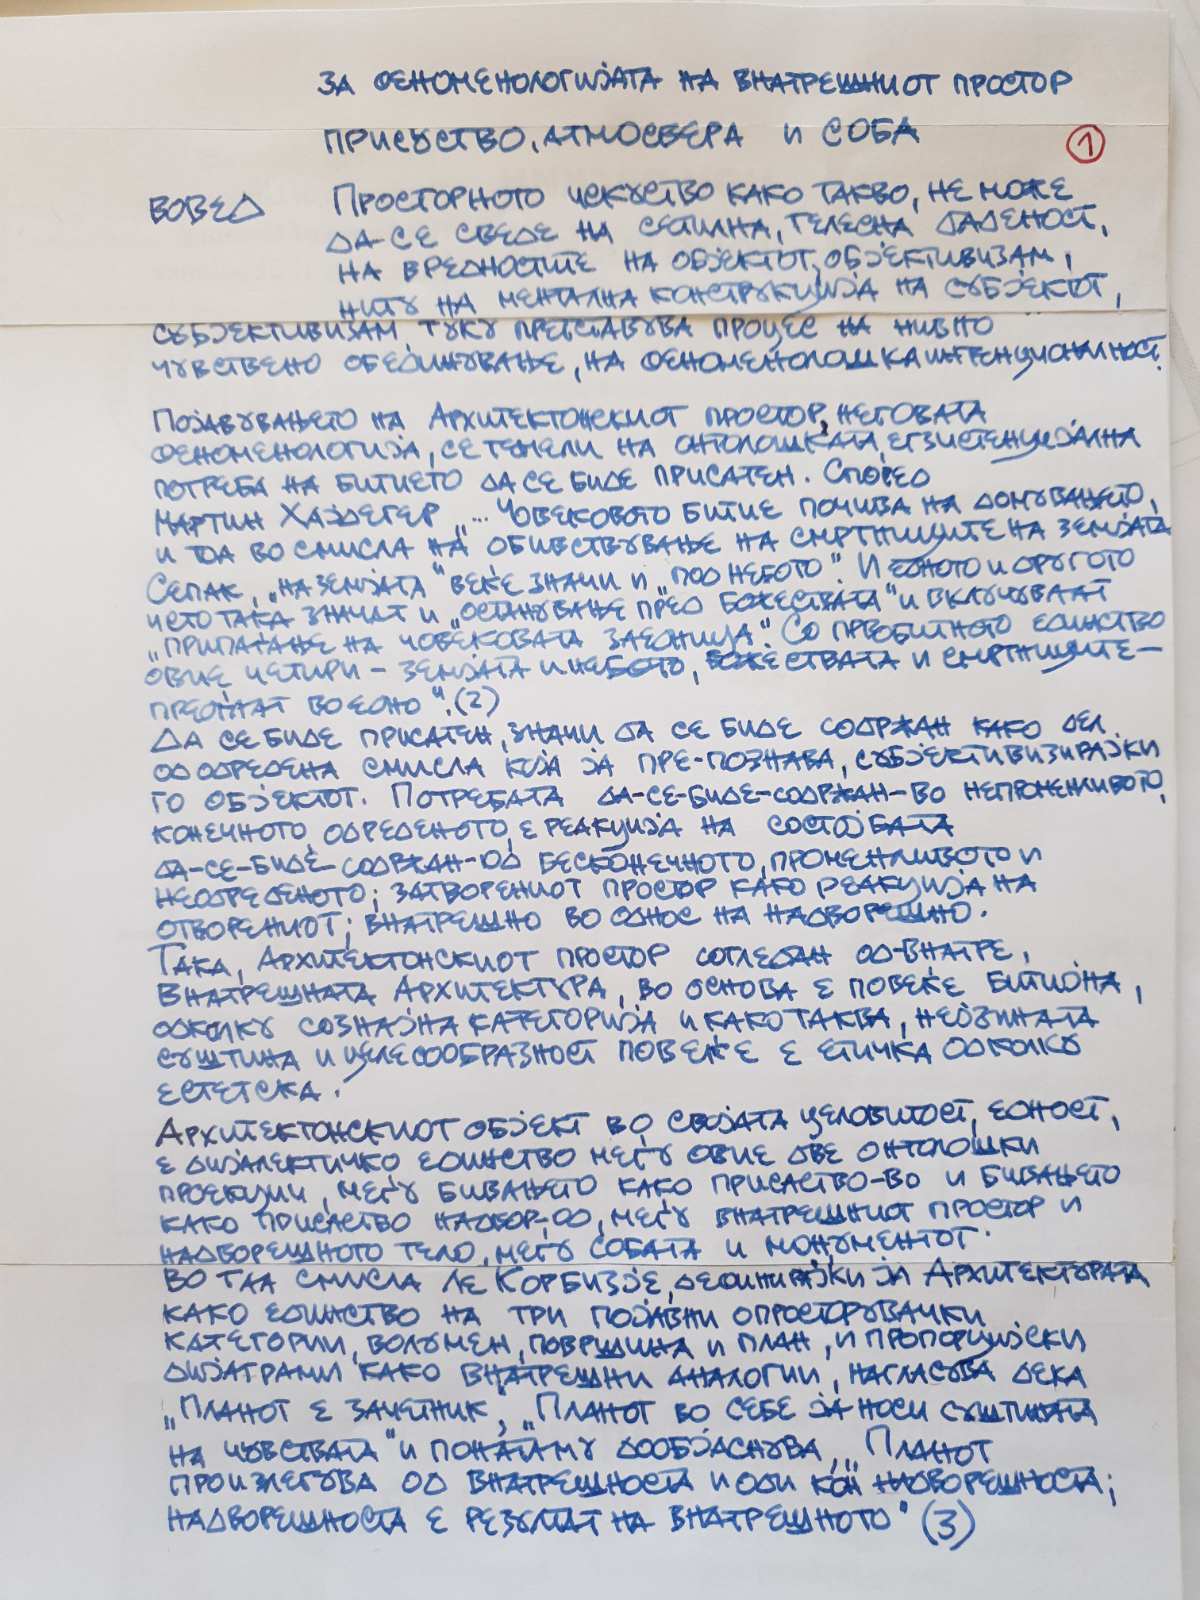 За феноменологијата на внатрешниот простор
Присуство, атмосвера и соба
1
Вовед Просторното искуство како такво, не може
да-се сведе на сетилна, телесна даденост,
на вредностите на објектот, објективизам,
ниту на ментална конструкција на субјектот,
субјективизам, туку претставува процес на нивно
чувствено обединување, на феноменолошка интенционалност.
Појавувањето на Архитектонскиот простор, неговата
феноменологија, се темели на онтолошката, егзистенцијална
потреба на битието да се биде присатен. Според
Мартин Хајдегер „... Човековото битие почива на домувањето,
и тоа во смисла на обивствување на смртниците на земјата
Сепак, „на земјата" веќе значи и „под небото". И едното и другото
исто така значат и „останување пред божествата" и вклучуваат
„припаѓање на човековата заедница". Со првобитното единство
овие четири – земјата и небото, божествата и смртниците –
преоѓаат во едно". (2)
Да се биде присатен, значи да се биде содржан како дел
од одредена смисла која ја пре-познава, субјективизирајќи
го објектот. Потребата да-се-биде-содржан-во непроменливото,
конечното, одреденото, е реакција на состојбата
да-се-биде-содржан-од бесконечното, променливото и
неодреденото; затворениот простор како реакција на
отворениот; внатрешно во однос на надворешно.
Така, Архитектонскиот простор согледан од-внатре,
внатрешната Архитектура, во основа е повеќе битијна,
одколку сознајна категорија и како таква, нејзината
суштина и целесообразност повеќе е етичка одколку
естетска.
Архитектонскиот објект во својата целовитост, едност,
е дијалектичко единство меѓу овие две онтолошки
проекции, меѓу бивањето како присаство-во и бивањето
како присаство надвор-од, меѓу внатрешниот простор и
надворешното тело, меѓу собата и монументот.
Во таа смисла Ле Корбизје, дефинирајќи ја Архитектурата
како единство на три појавни опросторувачки
категории, волумен, површина и план, и пропорцијски
дијаграми како внатрешни аналогии, нагласува дека
„Планот е зачетник, „Планот во себе ја носи суштината
на чувствата" и понатаму дообјаснува, „Планот
произлегува од внатрешноста и оди кон надворешноста;
надворешноста е резултат на внатрешното" (3)